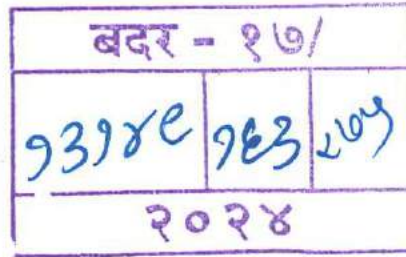 बदर - १७/
१३१४९ १६३ २७५
२०२४